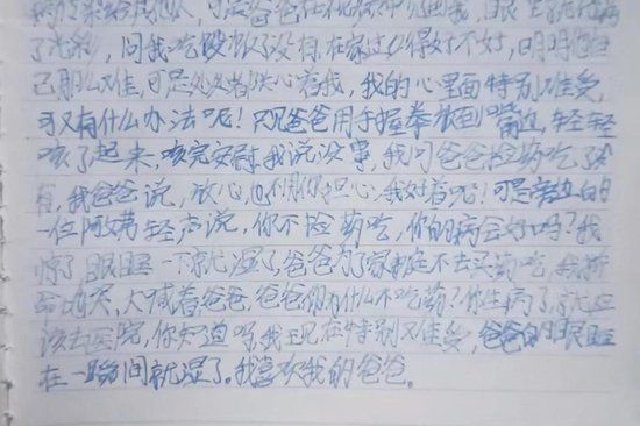 病传染给其他人,可是爸爸在视频中见到我,眼
了光彩,问我吃饭没有在家过得好不好,明明自
己那么难,可是处处都关心着我,我的心里面特别难受
可又有什么办法呢!只见爸爸用手握拳放到嘴边,轻轻
咳了起来,咳完安慰我说没事,我问爸爸捡药吃了没
有,我爸爸说,放心,也不用你担心,我好着呢!可是旁边的
一位阿姨轻声说,你不捡药吃,你的病会好吗?我
眼睛一下就湿了,爸爸为了家庭不去买药吃,我
哭,大喊着,爸爸,爸爸你为什么不吃药?你生病了,就应
该去医院,你知道吗,我现在特别难受,爸爸的眼眶
在一瞬间就湿了。我喜欢我的爸爸。